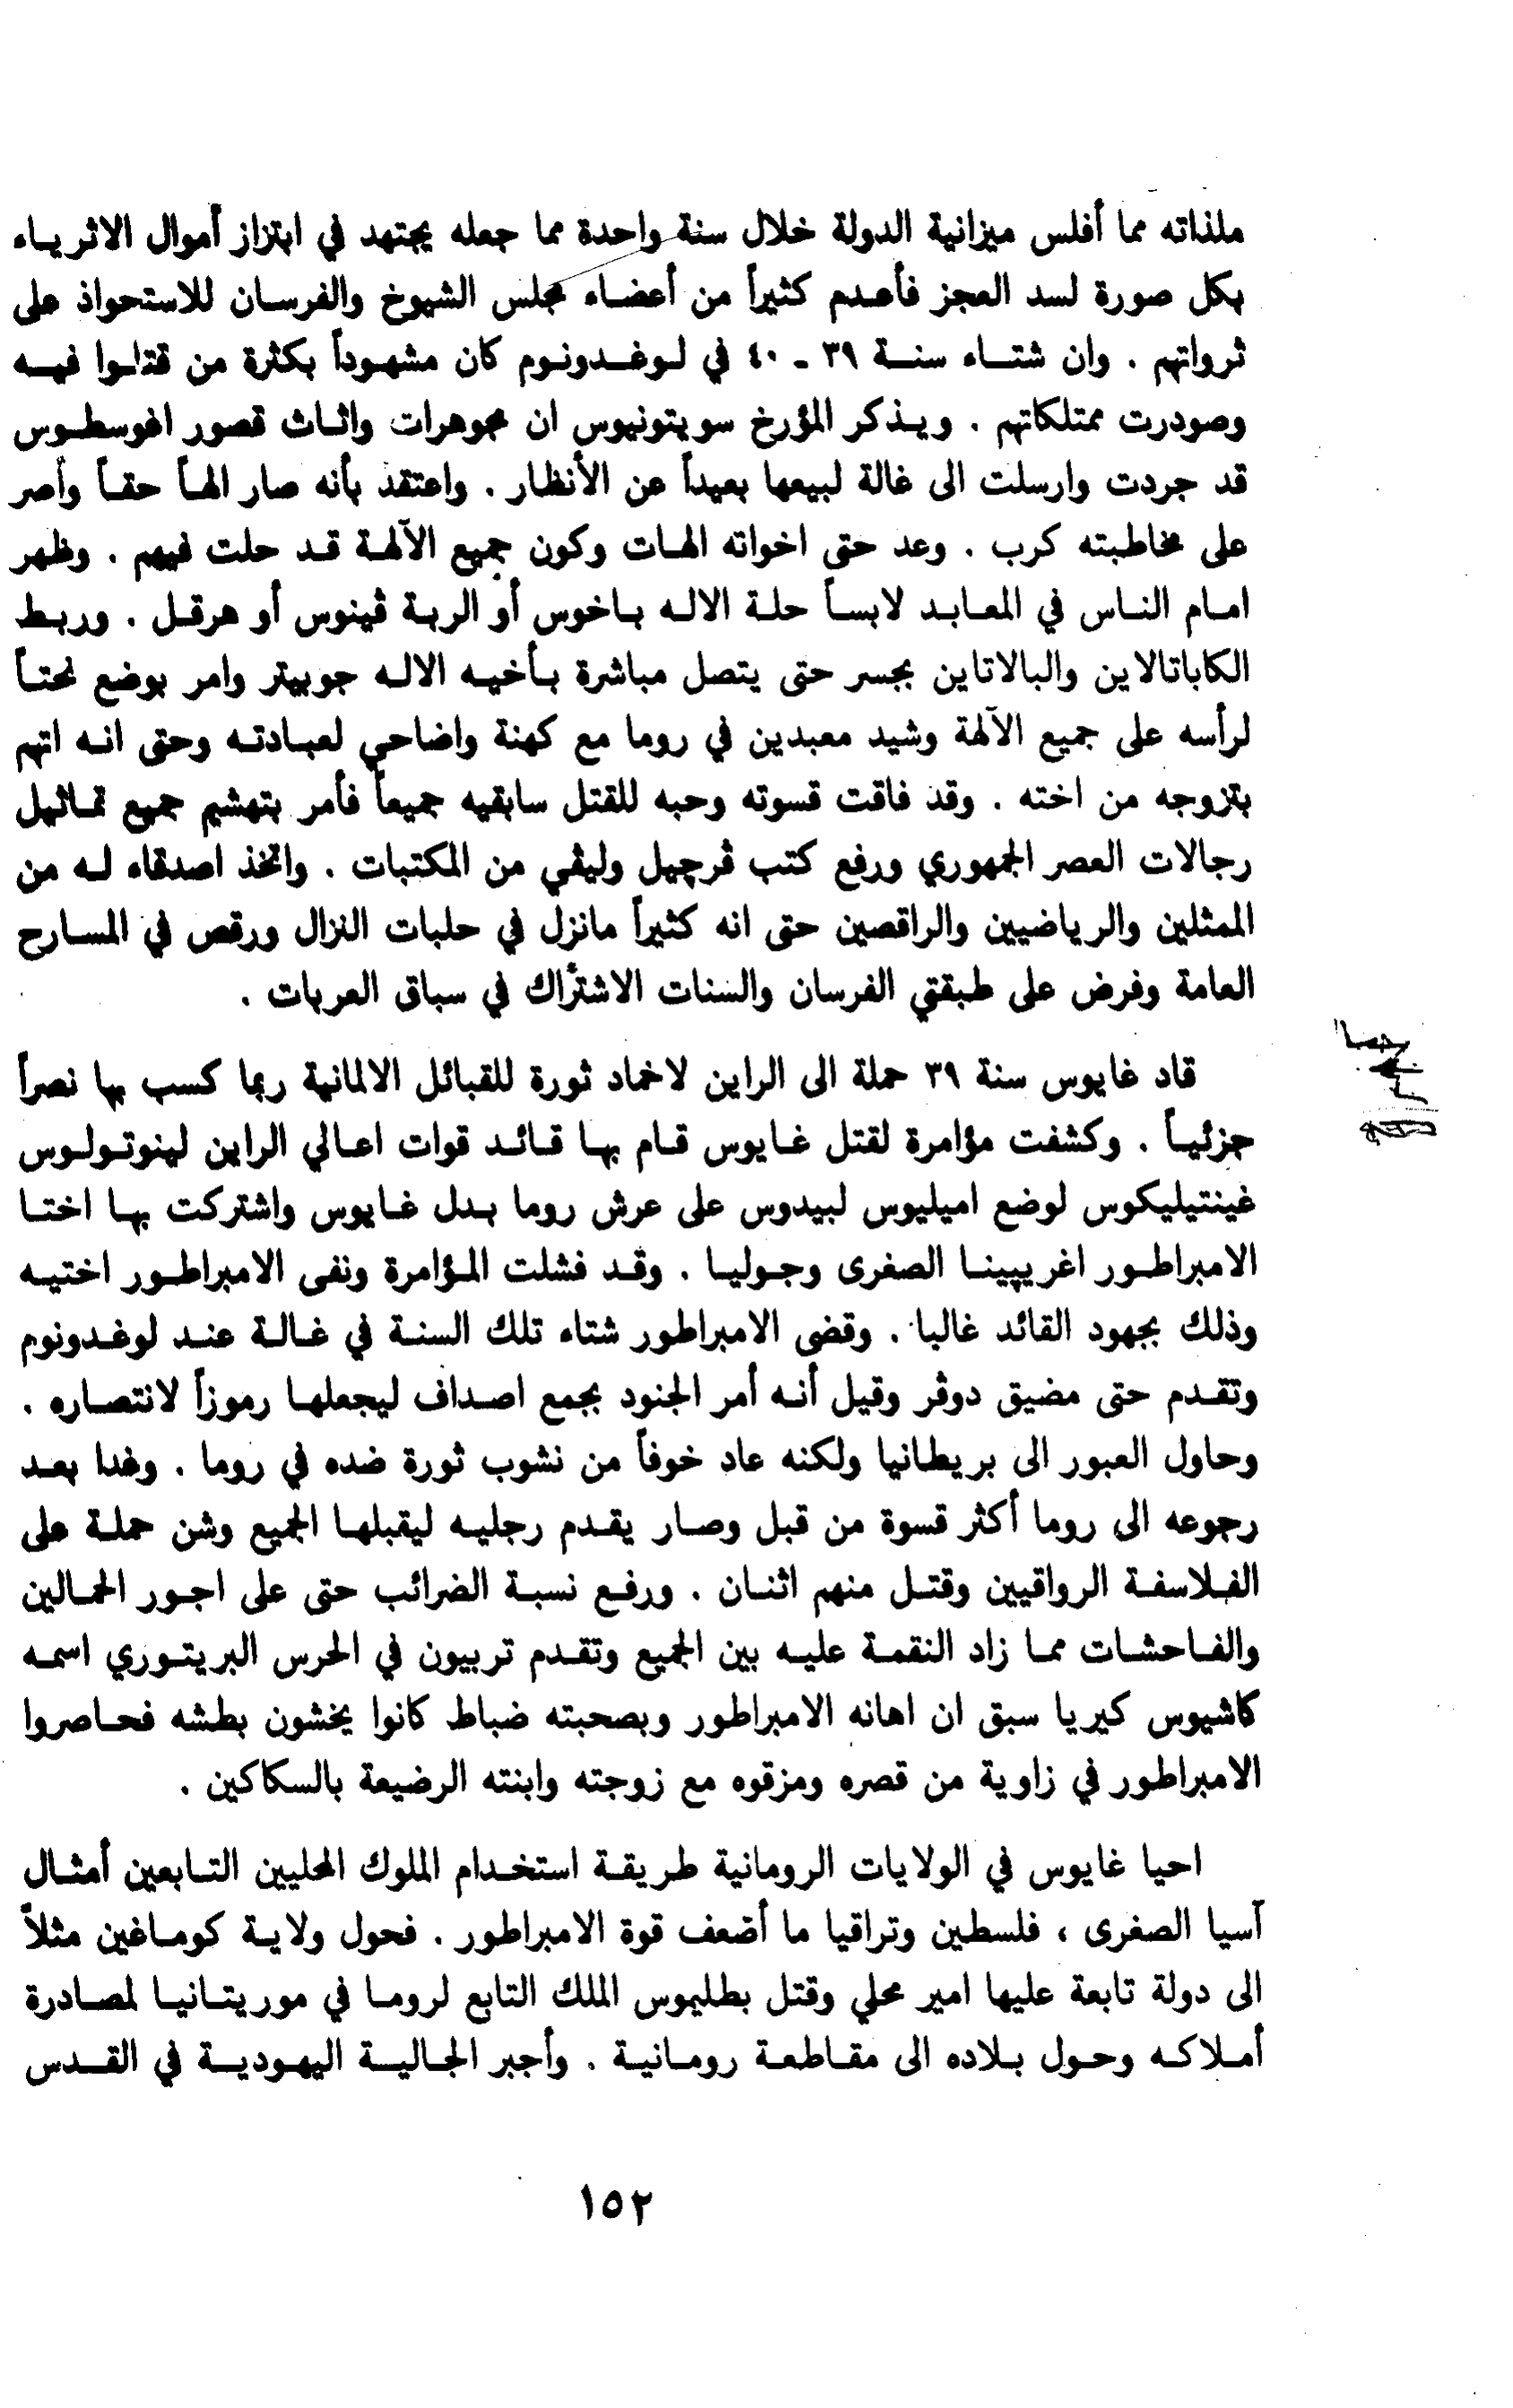 ملذاته مما أفلس ميزانية الدولة خلال سنة واحدة مما جعله يجتهد في ابتزاز أموال الاثرياء
بكل صورة لسد العجز فأعدم كثيراً من أعضاء مجلس الشيوخ والفرسان للاستحواذ على
ثرواتهم . وان شتاء سنة ٣٩ - ٤٠ في لوغدونوم كان مشهوداً بكثرة من قتلوا فيه
وصودرت ممتلكاتهم . ويذكر المؤرخ سويتونيوس ان مجوهرات واثاث قصور اغوسطوس
قد جردت وارسلت الى غالة لبيعها بعيداً عن الأنظار . واعتقد بأنه صار الهاً حقاً وأصر
على مخاطبته كرب . وعد حتى اخواته الهات وكون جميع الآلهة قد حلت فيهم . وظهر
امام الناس في المعابد لابساً حلة الاله باخوس أو الربة ڤينوس أو هرقل . وربط
الكاباتالاين والبالاتاين بجسر حتى يتصل مباشرة بأخيه الاله جوبيتر وامر بوضع نحتاً
لرأسه على جميع الآلهة وشيد معبدين في روما مع كهنة واضاحي لعبادته وحتى انه اتهم
بتزوجه من اخته . وقد فاقت قسوته وحبه للقتل سابقيه جميعاً فأمر بتهشيم جميع تماثيل
رجالات العصر الجمهوري ورفع كتب ڤرجيل وليڤي من المكتبات . واتخذ اصدقاء له من
الممثلين والرياضيين والراقصين حتى انه كثيراً مانزل في حلبات النزال ورقص في المسارح
العامة وفرض على طبقتي الفرسان والسنات الاشتراك في سباق العربات .
قاد غايوس سنة ٣٩ حملة الى الراين لاخماد ثورة للقبائل الالمانية ربما كسب بها نصراً
جزئياً . وكشفت مؤامرة لقتل غايوس قام بها قائد قوات اعالي الراين لينوتولوس
غينتيليكوس لوضع اميليوس لبيدوس على عرش روما بدل غايوس واشتركت بها اختا
الامبراطور اغريپينا الصغرى وجوليا . وقد فشلت المؤامرة ونفى الامبراطور اختيه
وذلك بجهود القائد غالبا . وقضى الامبراطور شتاء تلك السنة في غالة عند لوغدونوم
وتقدم حتى مضيق دوڤر وقيل أنه أمر الجنود بجمع اصداف ليجعلها رموزاً لانتصاره .
وحاول العبور الى بريطانيا ولكنه عاد خوفاً من نشوب ثورة ضده في روما . وغدا بعد
رجوعه الى روما أكثر قسوة من قبل وصار يقدم رجليه ليقبلها الجميع وشن حملة على
الفلاسفة الرواقيين وقتل منهم اثنان . ورفع نسبة الضرائب حتى على اجور الحمالين
والفاحشات مما زاد النقمة عليه بين الجميع وتقدم تربيون في الحرس البريتوري اسمه
كاشيوس كيريا سبق ان اهانه الامبراطور وبصحبته ضباط كانوا يخشون بطشه فحاصروا
الامبراطور في زاوية من قصره ومزقوه مع زوجته وابنته الرضيعة بالسكاكين .
احيا غايوس في الولايات الرومانية طريقة استخدام الملوك المحليين التابعين أمثال
آسيا الصغرى ، فلسطين وتراقيا ما أضعف قوة الامبراطور . فحول ولاية كوماغين مثلاً
الى دولة تابعة عليها امير محلي وقتل بطليموس الملك التابع لروما في موريتانيا لمصادرة
أملاكه وحول بلاده الى مقاطعة رومانية . وأجبر الجالية اليهودية في القدس
١٥٢